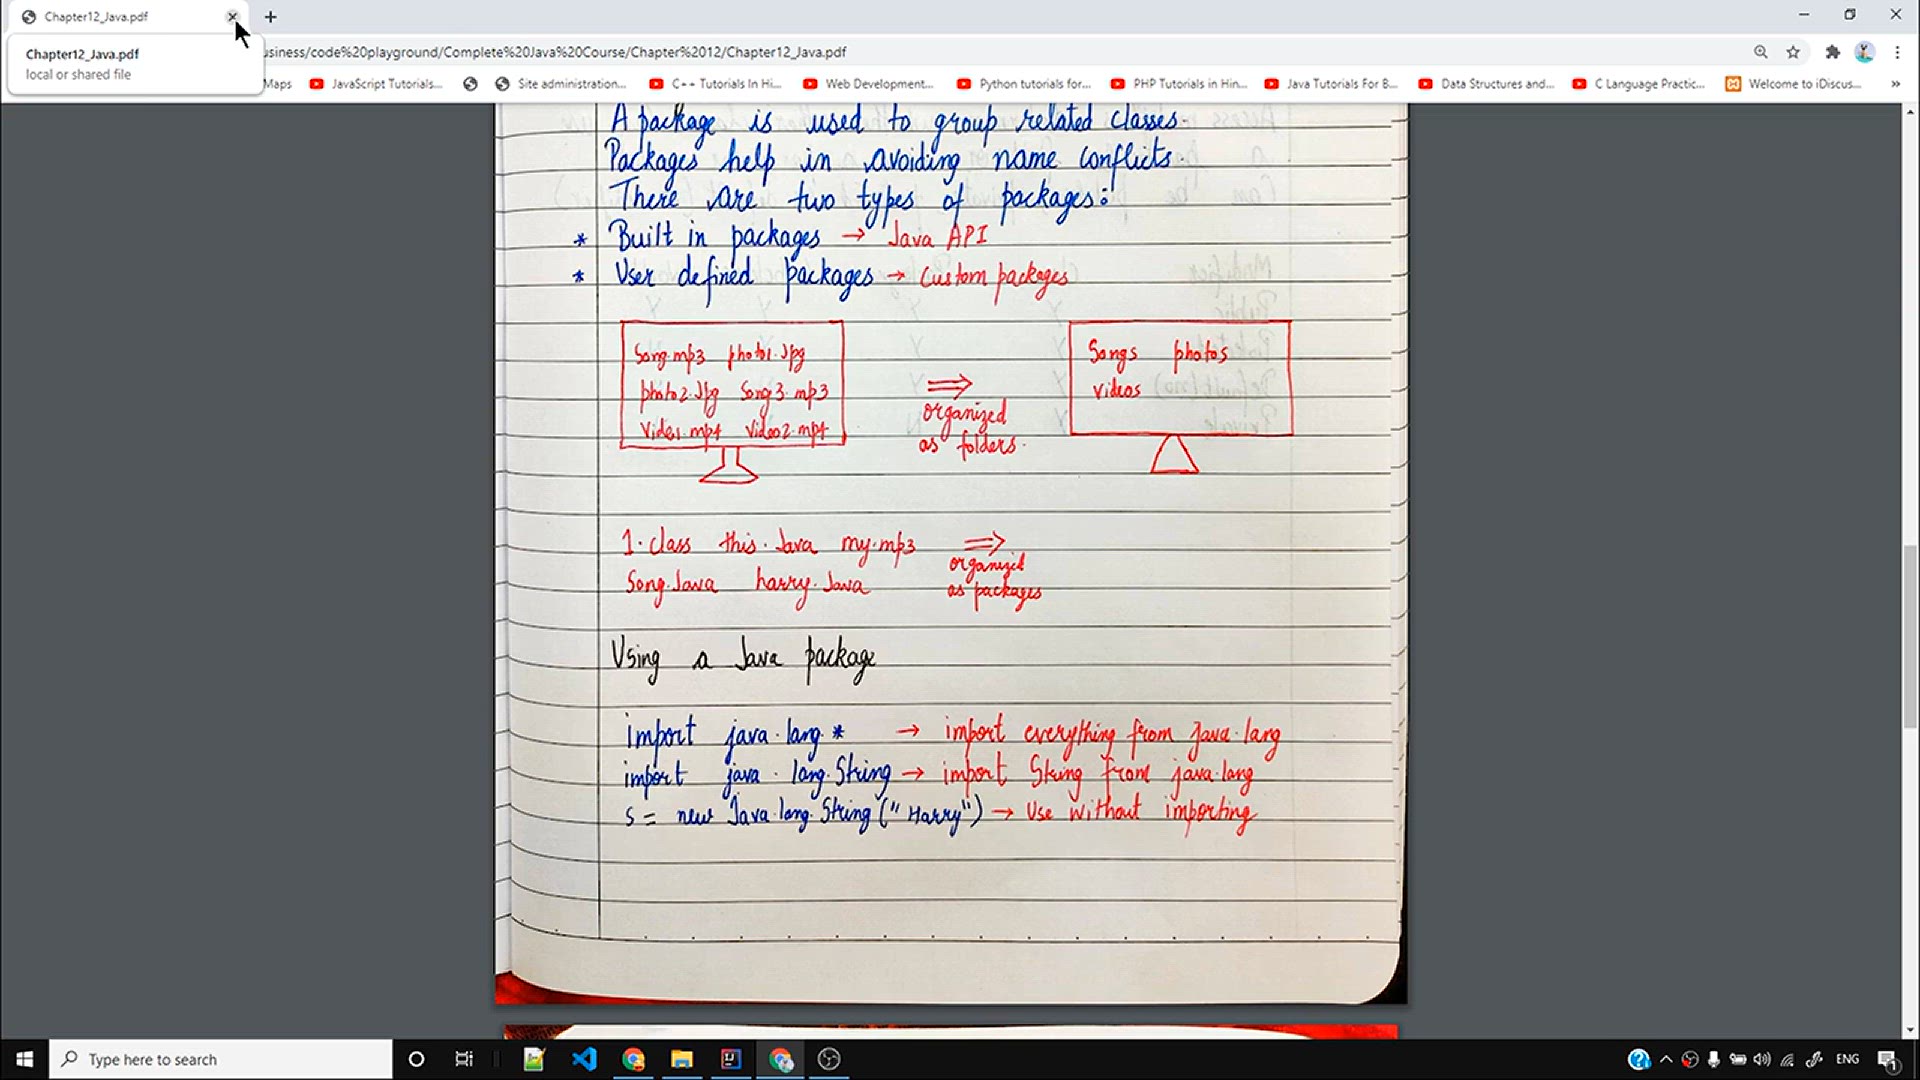 Chapter12_Java.pdf
Chapter12_Java.pdf
local or shared file
usiness/code%20playground/Complete%20Java%20Course/Chapter%2012/Chapter12_Java.pdf
Maps JavaScript Tutorials... Site administration... C++ Tutorials In Hi... Web Development... Python tutorials for... PHP Tutorials in Hin... Java Tutorials For B... Data Structures and... C Language Practic... Welcome to iDiscus... »
A package is used to group related classes.
Packages help in avoiding name conflicts.
There are two types of packages:
* Built in packages → Java API
* User defined packages → Custom packages
Song.mp3 photo1.Jpg
photo2.Jpg Song3.mp3
Video1.mp4 Video2.mp4
⇒
organized
as folders.
Songs photos
videos
1.class this.Java my.mp3
Song.Java harry.Java
⇒
organized
as packages
Using a Java package
import java.lang.* → import everything from java.lang
import java.lang.String → import String from java.lang
s = new Java.lang.String("Harry") → Use without importing
Type here to search
ENG
1